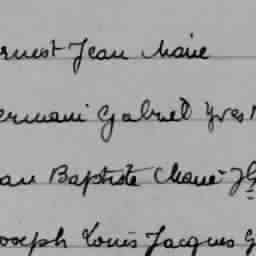 ernest Jean Marie
ermani Gabriel Yves
ean Baptiste Marie J
Joseph Louis Jacques G